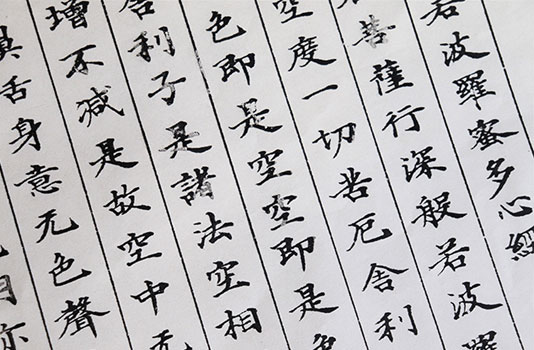 若波羅蜜多心經
菩薩行深般若波羅
空度一切苦厄舍利
色即是空空即是色
舍利子是諸法空相
增不减是故空中无
舌身意无色聲
亦